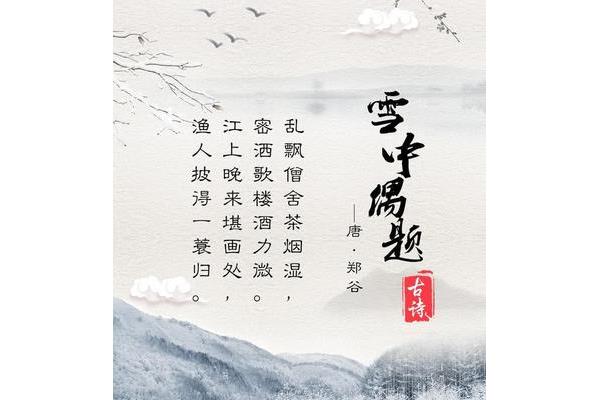 雪中偶题
——唐·郑谷
古诗
乱飘僧舍茶烟湿，
密洒歌楼酒力微。
江上晚来堪画处，
渔人披得一蓑归。